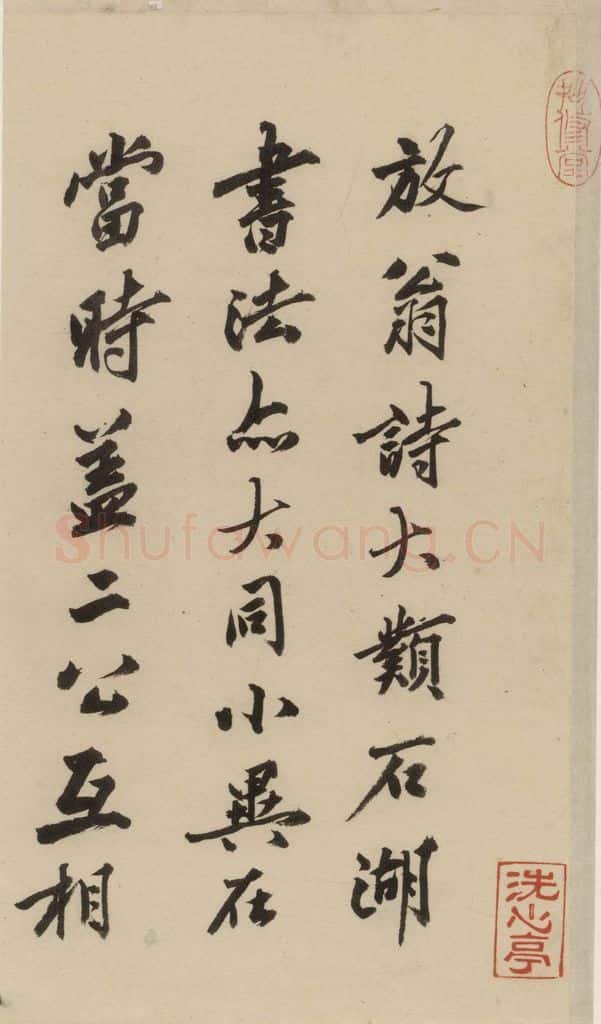 放翁詩大類石湖
書法亦大同小異在
當時蓋二公互相
洗心亭
Shufawang.CN